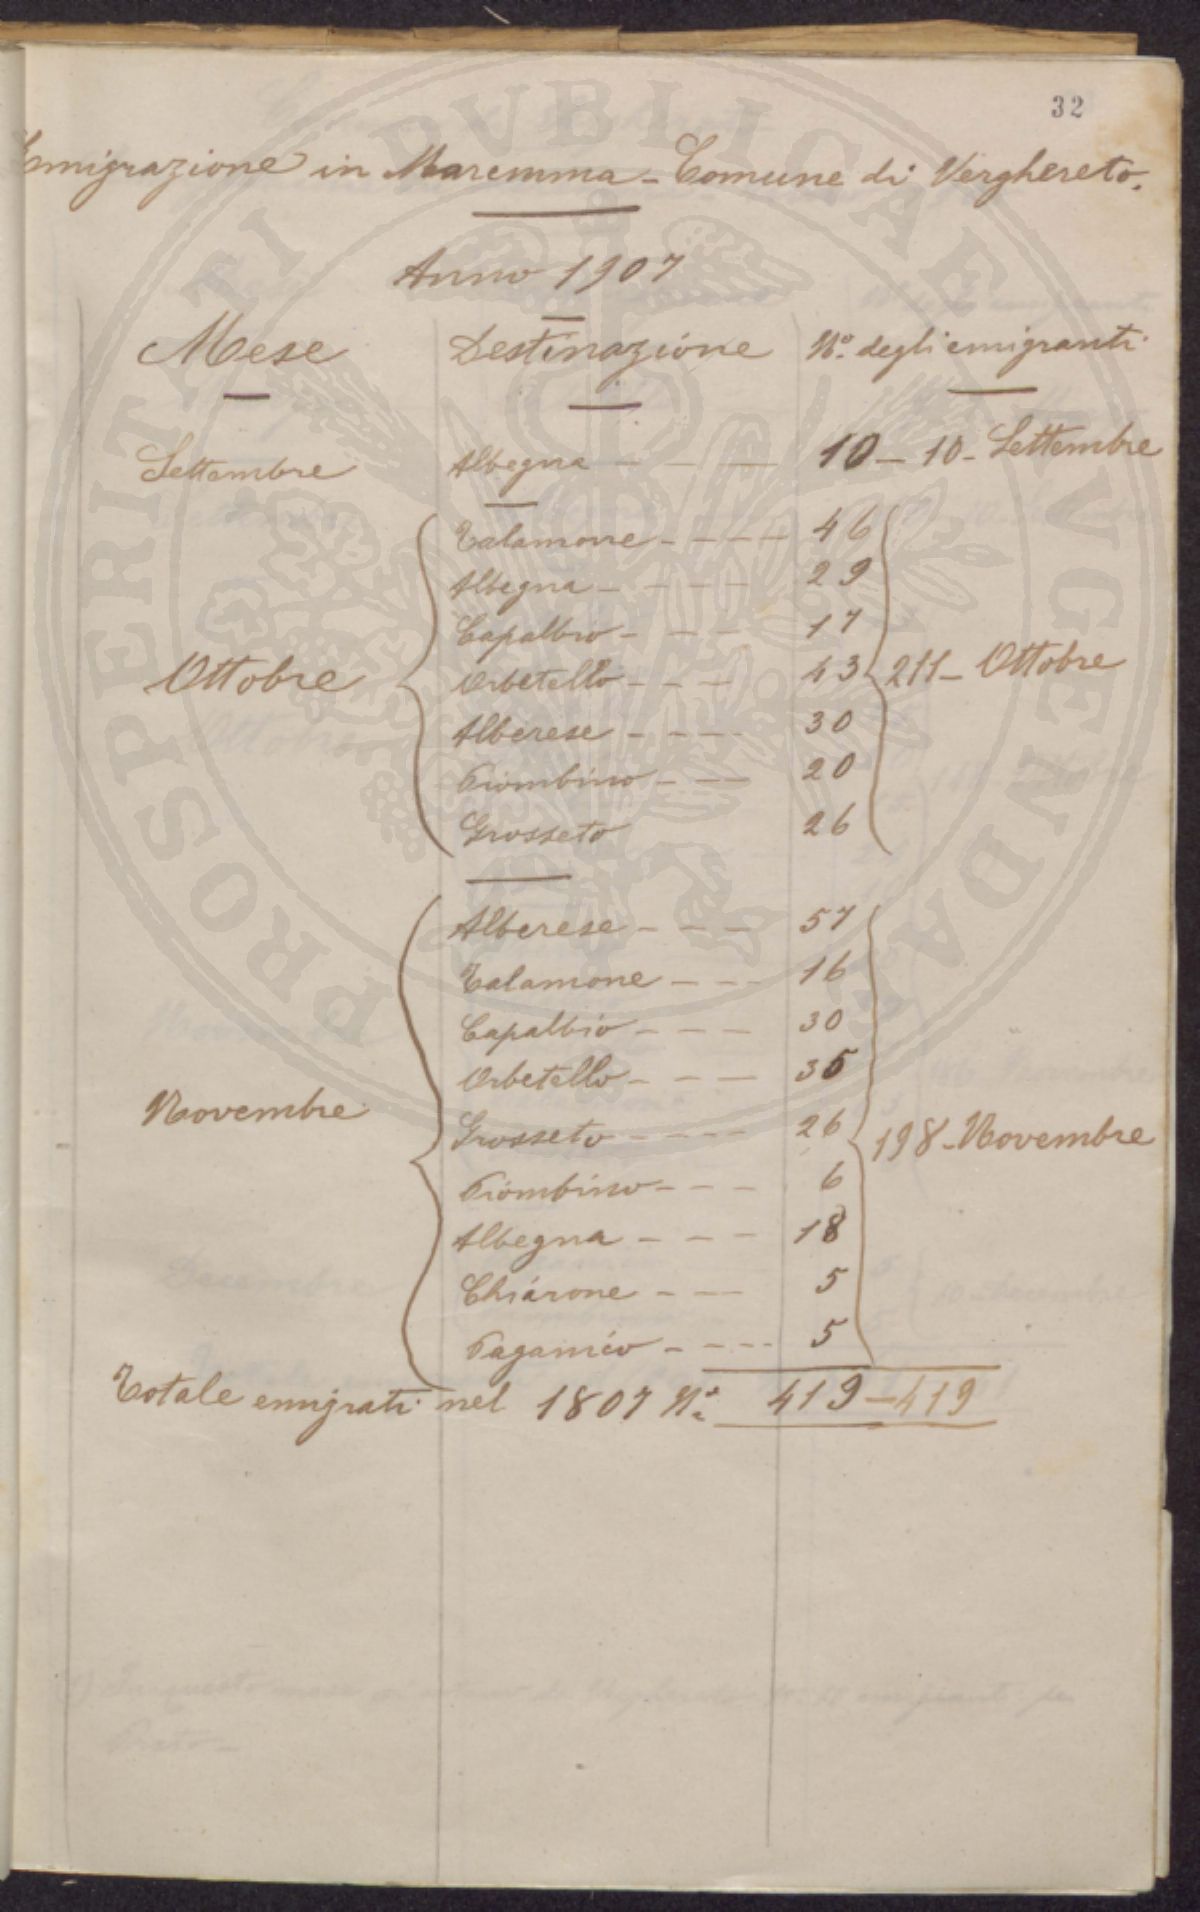 32
Emigrazione in Maremma - Comune di Verghereto.
Anno 1907
Mese Destinazione No. degli emigranti
Settembre Albegna - - - 10 - 10 - Settembre
Talamone - - - - 46
Albegna - - - - 29
Capalbio - - - 17
Ottobre Orbetello - - - 43 211 - Ottobre
Alberese - - - - 30
Piombino - - - 20
Grosseto 26
Alberese - - - 57
Talamone - - - 16
Capalbio - - - 30
Orbetello - - - 35
Novembre Grosseto - - - - 26 198 - Novembre
Piombino - - - 6
Albegna - - - 18
Chiarone - - - 5
Paganico - - - - 5
Totale emigrati nel 1807 No. 419 - 419
PROSPERITATI PVBLICAE AVGENDAE